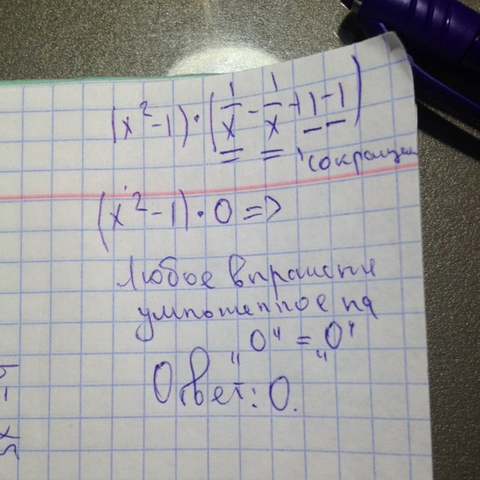 (x²-1)·(1/x - 1/x + 1 - 1)
сокращаем
(x²-1)·0 =>
Любое выражение
умноженное на
"0" = "0"
Ответ: 0.